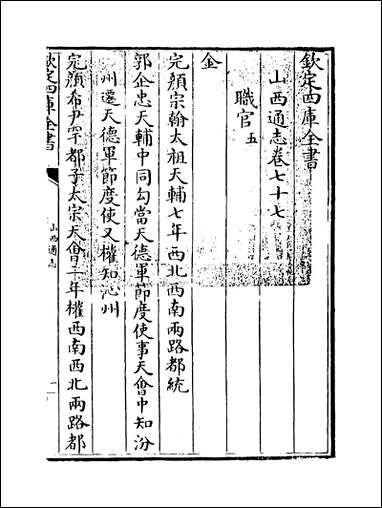 欽定四庫全書
山西通志卷七十七
職官五
金
完顔宗翰太祖天輔七年西北西南兩路都統
郭企忠天輔中同勾當天德軍節度使事天會中知汾
州遷天德軍節度使又權知沁州
完顔希尹罕都子太宗天會三年權西南西北兩路都
欽定四庫全書
山西通志